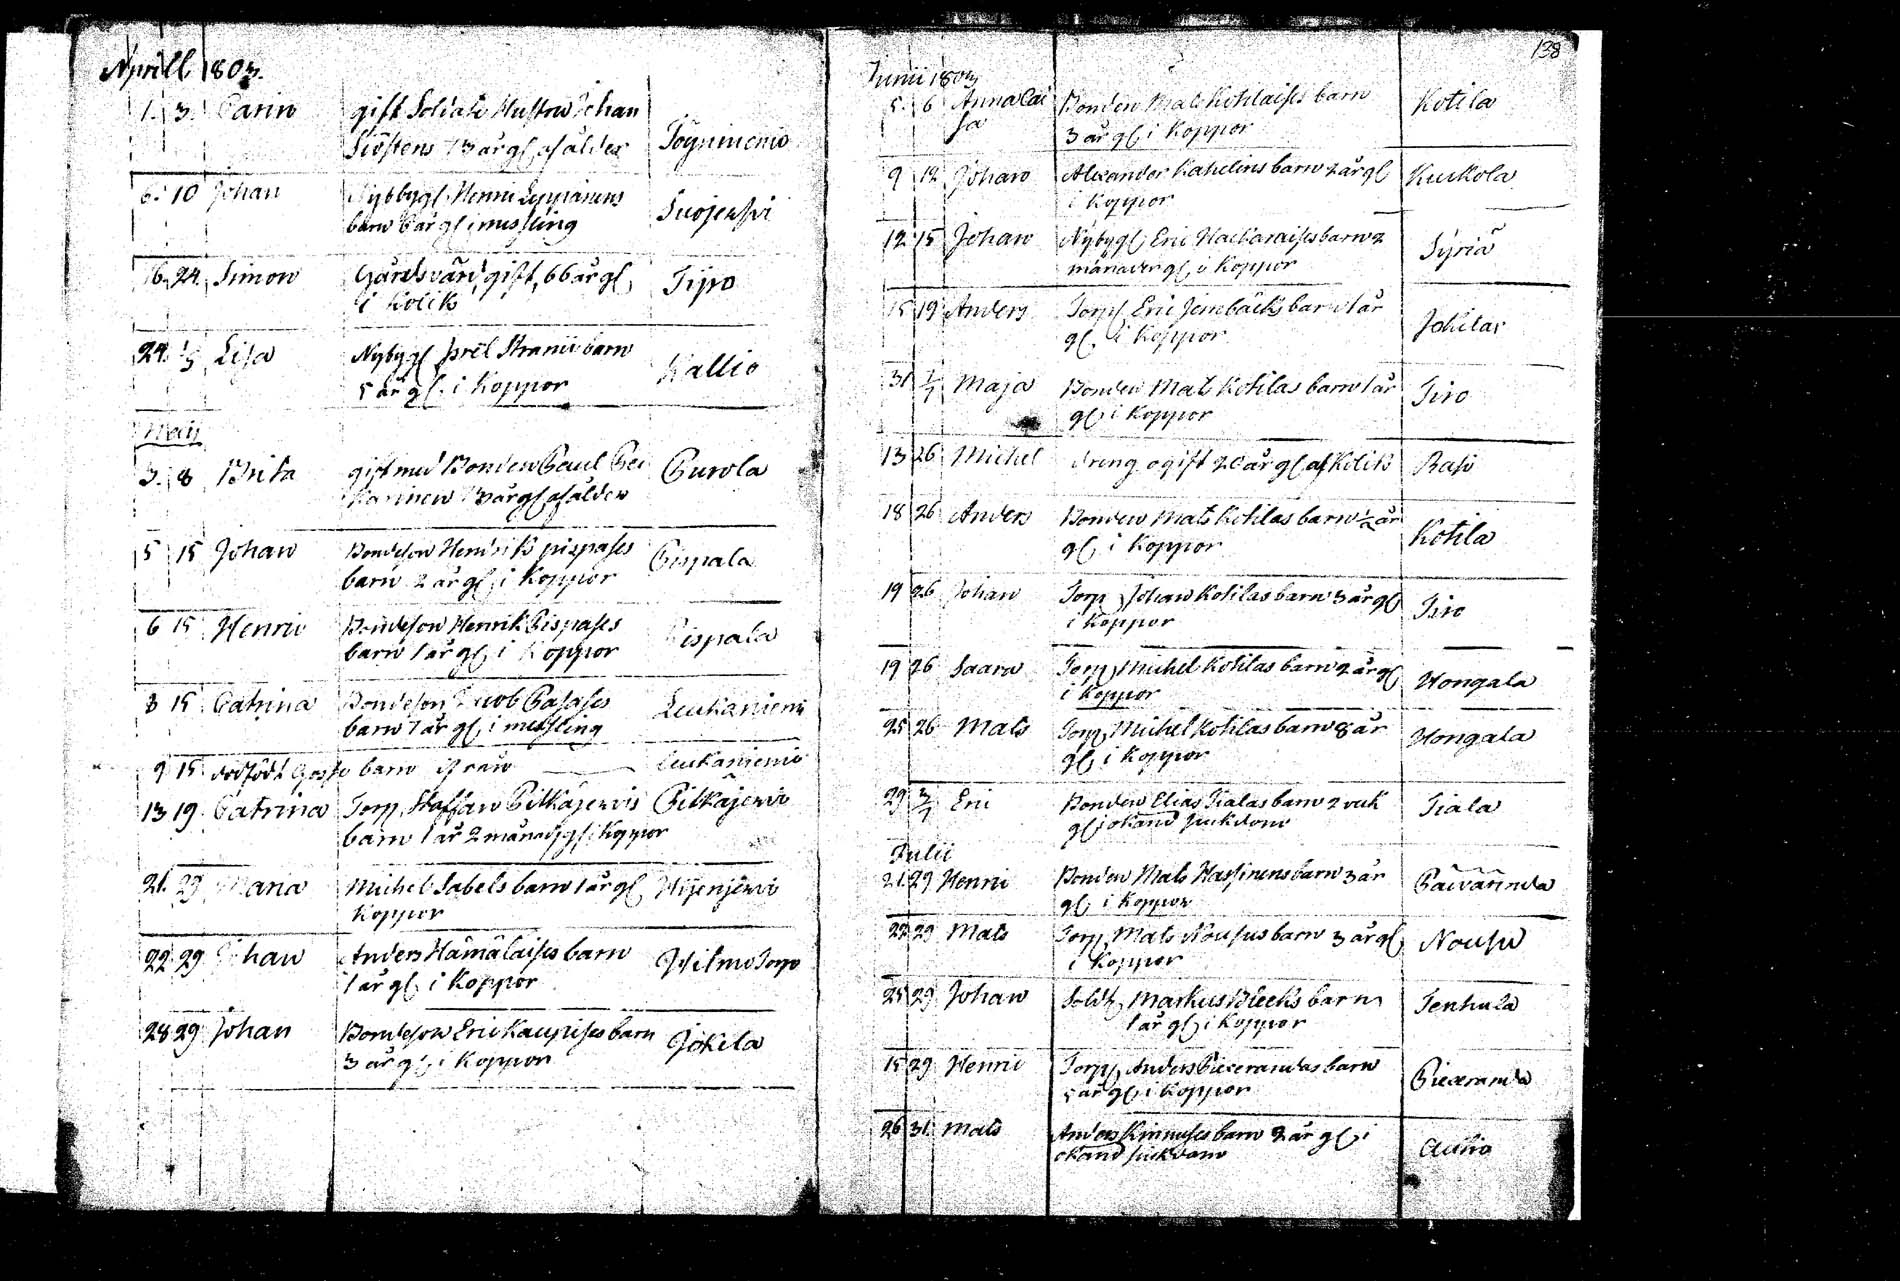 Aprill 1803.
1. 3. Carin gift Soldats Hustru Johan
73 år gl af ålder
6. 10 Johan Nybbygl Henric Leppänens Suojerfvi
barn 6 år gl i messling
16. 24. Simon Gårdsvärd, gift, 66 år gl Tipo
i Kolik
24. 1/5 Lisa Nybygl Isrel barn Kallio
5 år gl. i Koppor
Maij
3. 8 Brita gift med Bonden Paul Purola
73 år gl af ålder
5 15 Johan Bondeson Hendrik pispases Pispala
barn 2 år gl i Koppor
6 15 Henric Bondeson Henrik Pispases Pispala
barn 1 år gl i Koppor
8 15 Catrina Bondeson Jacob Pasases Leukaniemi
barn 1 år gl i messling
9 15 dödfödt Gosse barn ifrån Leukaniemi
13 19 Catrina Torp Staffan Pitkäjervis Pitkäjervi
barn 1 år 2 månad gl i Koppor
21. 29 Maria Michel Sabels barn 1 år gl
Koppor
22 29 Johan Anders Hämäläises barn Wilmo Torp
1 år gl i Koppor
28 29 Johan Bondeson Eric Kaupises barn Jokela
3 år gl. i Koppor
138
Junii 1803
5. 6 Anna Cai Bonden Mats Kotilaises barn Kotila
sa 3 år gl i Koppor
9 12 Johan Alexander Kahelins barn 2 år gl Kuukola
i Koppor
12 15 Johan Nybygl Eric Hackaraises barn 2 Syriä
månader gl i Koppor
15 19 Anders Torp Eric Jernbäcks barn 1 år Jokilas
gl. i Koppor
31 1/7 Maja Bonden Mats Kotilas barn 1 år Tiro
gl i Koppor
13 26 Michel dreng ogift 20 år gl af Kolik Rasi
18 26 Anders Bonden Mats Kotilas barn 1/2 år Kotila
gl i Koppor
19 26 Johan Torp Johan Kotilas barn 3 år gl Tiro
i Koppor
19 26 Saara Torp Michel Kotilas barn 2 år gl Hongala
i Koppor
25 26 Mats Torp Michel Kotilas barn 8 år Hongala
gl i Koppor
29 3/7 Eric Bonden Elias Tialas barn 2 vek Tiala
gl i okänd siukdom
Julii
21 29 Henric Bonden Mats Hassinens barn 3 år Päivärinda
gl i Koppor
22 29 Mats Torp Mats Nousus barn 3 år gl Nousu
i Koppor
25 29 Johan Sold Markus Bleeks barn Tenhula
1 år gl i Koppor
15 29 Henric Torp Anders barn
5 år gl i Koppor
26 31 Mats Anders Kinnuses barn 2 år gl i Autio
okänd siukdom